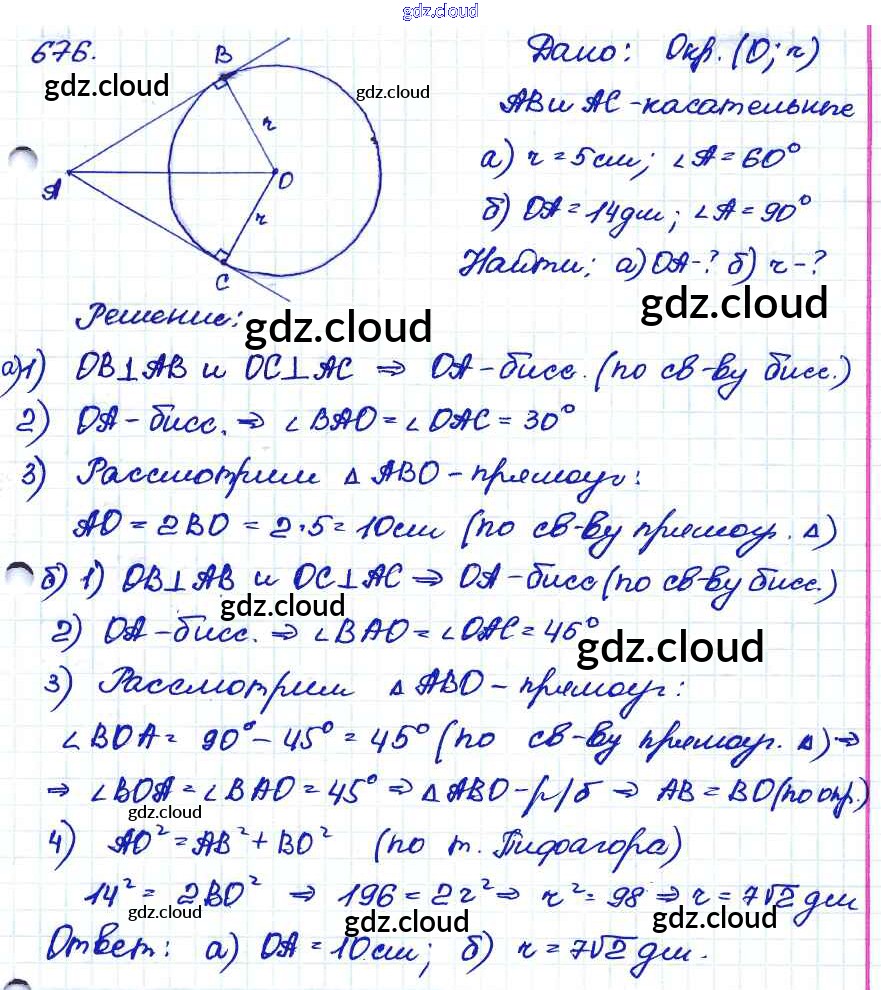 gdz.cloud
676.
Дано: Окр. (O; r)
AB и AC - касательные
а) r = 5 см; ∠A = 60°
б) OA = 14 дм; ∠A = 90°
Найти: а) OA - ? б) r - ?
B
r
A
O
r
C
gdz.cloud
gdz.cloud
gdz.cloud
Решение:
gdz.cloud
а) 1) OB⊥AB и OC⊥AC ⇒ OA - бисс. (по св-ву бисс.)
2) OA - бисс. ⇒ ∠BAO = ∠OAC = 30°
3) Рассмотрим △ABO - прямоуг:
AO = 2BO = 2·5 = 10 см (по св-ву прямоуг. △)
б) 1) OB⊥AB и OC⊥AC ⇒ OA - бисс (по св-ву бисс.)
gdz.cloud
2) OA - бисс. ⇒ ∠BAO = ∠OAC = 45°
gdz.cloud
3) Рассмотрим △ABO - прямоуг:
∠BOA = 90° - 45° = 45° (по св-ву прямоуг. △) ⇒
⇒ ∠BOA = ∠BAO = 45° ⇒ △ABO - р/б ⇒ AB = BO (по опр.)
gdz.cloud
4) AO² = AB² + BO² (по т. Пифагора)
14² = 2BO² ⇒ 196 = 2r² ⇒ r² = 98 ⇒ r = 7√2 дм
gdz.cloud
gdz.cloud
gdz.cloud
Ответ: а) OA = 10 см; б) r = 7√2 дм.